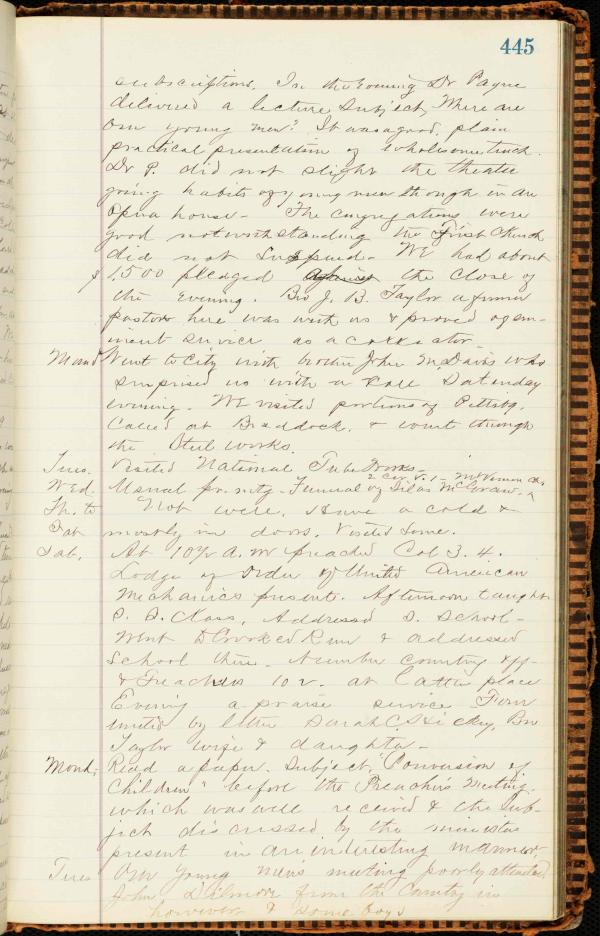 445
subscriptions. In the Evening Dr Payne
delivered a lecture Subject, Where are
Our young men? It was a good, plain
practical presentation of wholesome truth.
Dr P. did not slight the theatre
going habits of young men though in an
Opera house - The congregations were
good notwithstanding the First Church
did not Suspend. We had about
$1,500 pledged against the close of
the evening. Bro J. B. Taylor a former
pastor here was with us & proved of em-
inent service as a collector.
Mond Went to City with brother John McDavis who
surprised us with a call Saturday
evening. We visited portions of Pittsbg.
Called at Braddock, & went through
the Steel works.
Tues. Visited National Tube Works -
Wed. Usual pr. mtg. Funeral of Silas McGraw. 2 Cor. V. 1 -
Th. to Hot were. Have a cold &
Sat mostly in doors. Visited some.
Sab. At 10½ A. M preached Col 3. 4.
Lodge of Order of United American
Mechanics present. Afternoon taught
S. S. Class, Addressed S. School -
Went to Crooked Run & addressed
School there. Number country
& Preachers 10 v. at latter place
Evening a praise service Four
united by letter Sarah C. Hickey, Bro
Taylor wife & daughter -
Mond, Read a paper. Subject, "Conversion of
Children" before the Preacher's Meeting.
which was well received & the Sub-
ject discussed by the ministers
present in an interesting manner.
Tues Our Young men's meeting poorly attended
John from the Country in
however & some boys